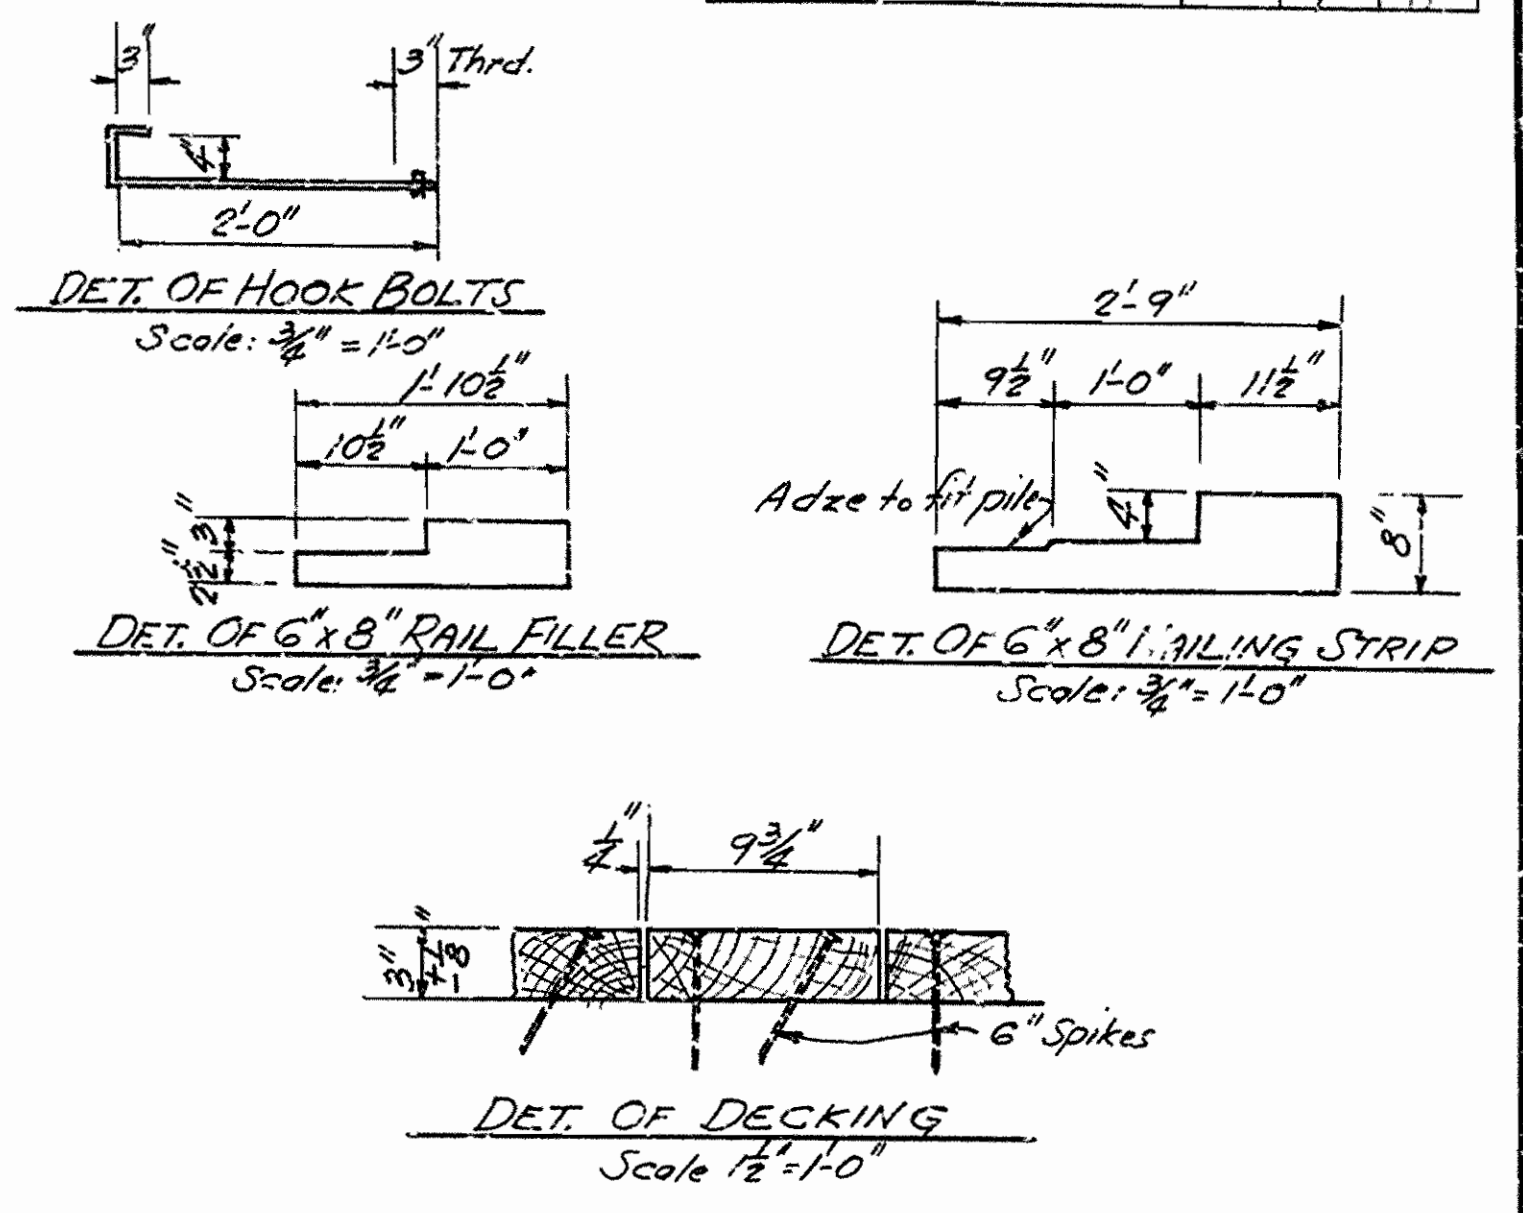 3"
3" Thrd.
4"
2'-0"
DET. OF HOOK BOLTS
Scale: 3/4" = 1'-0"
1'-10 1/2"
10 1/2" 1'-0"
3"
2 1/2"
DET. OF 6" x 8" RAIL FILLER
Scale: 3/4" = 1'-0"
2'-9"
9 1/2" 1'-0" 11 1/2"
Adze to fit pile
4"
8"
DET. OF 6" x 8" STRIP
Scale: 3/4" = 1'-0"
1/4" 9 3/4"
3" ± 1/8"
6" Spikes
DET. OF DECKING
Scale 1 1/2" = 1'-0"